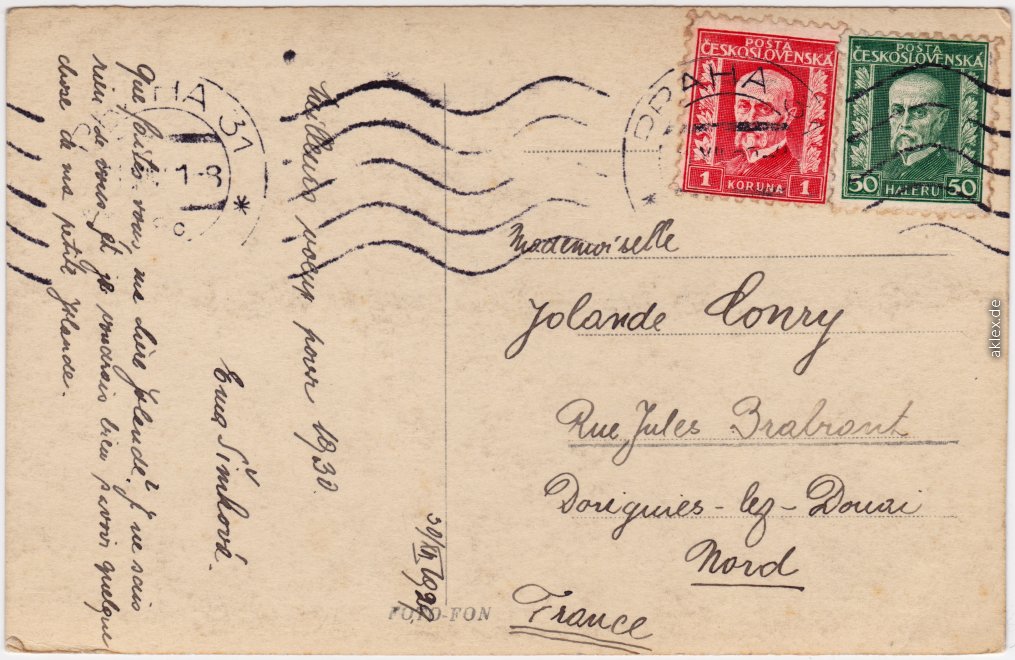 Meilleurs voeux pour 1930.
Eva Šimková.
Que faites-vous, ma chère Jolande? Je ne sais
rien de vous et je voudrais bien savoir quelque
chose de ma petite Jolande.
30/XII 1929
FOTO-FON
PRAHA 31
1-8
PRAHA
POSTA
ČESKOSLOVENSKÁ
1 KORUNA 1
POSTA
ČESKOSLOVENSKÁ
50 HALERU 50
Mademoiselle
Jolande Conry
Rue Jules Brabant
Dorignies-lez-Douai
Nord
France
aklex.de